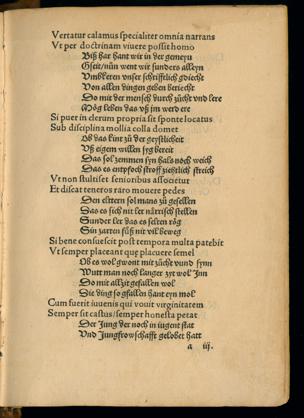 Vertatur calamus specialiter omnia narrans
Vt per doctrinam viuere possit homo
Biß har hant wir in der gemeyn
Gseit/nün went wir sunders alleyn
Vmbkeren vnser schrifftlich gdiecht
Von allen dingen geben bericht
Do mit der mensch durch zücht vnd lere
Mög leben das vß jm werd ere
Si puer in clerum propria sit sponte locatus
Sub disciplina mollia colla domet
Ob das kint zů der geystlicheit
Vß eigem willen syg bereit
Das sol zemmen syn hals noch weich
Das es entpfoch stroff ziechtlich streich
Vt non stultiset senioribus associetur
Et discat teneros raro mouere pedes
Den elttern sol mans zů gesellen
Das es sich nit ler närrisch stellen
Sunder ler das es selten rög
Sin zarten füß nit vil beweg
Si bene consuescit post tempora multa patebit
Vt semper placeant que placuere semel
Ob es wol gwont mit zücht vnd synn
Wutt man noch langer zyt wol jnn
Do mit allzit gefallen wol
Die ding so gfallen hant eyn mol
Cum fuerit iuuenis qui vouit virginitatem
Semper sit castus/semper honesta petat
Der Jung der noch in iugent stat
Vnd Jungfrowschafft gelobet hatt
a iij.